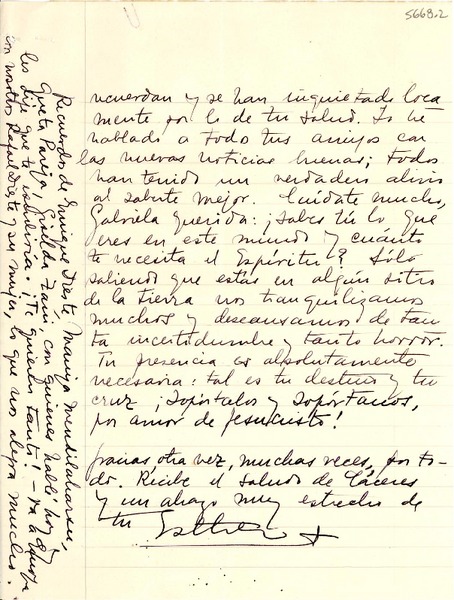 5668.2
recuerdan y se han inquietado loca
mente por lo de tu salud. Yo he
hablado a todo tus amigos con
las nuevas noticias buenas; todos
han tenido un verdadero alivio
al saberte mejor. Cuídate mucho,
Gabriela querida: ¿sabes tú lo que
eres en este mundo y cuánto
te necesita el Espíritu? Sólo
sabiendo que estás en algún sitio
de la tierra nos tranquilizamos
muchos y descansamos de tan
ta incertidumbre y tanto horror.
Tu presencia es absolutamente
necesaria: tal es tu destino y tu
cruz ¡Sopórtalos y sopórtanos,
por amor de Jesucristo!
Gracias, otra vez, muchas veces, por to-
do. Recibe el saludo de Cáceres
y un abrazo muy estrecho de
tu Esther
Recuerdos de Enrique Dieste, Maruja Mendilaharsu,
Queta Pareja, Gisilda Zani con quienes hablé hoy y
les dije que te escribiría. ¡Te quieren tanto! –
con nosotros Rafael Dieste y su mujer, lo que nos alegra mucho.